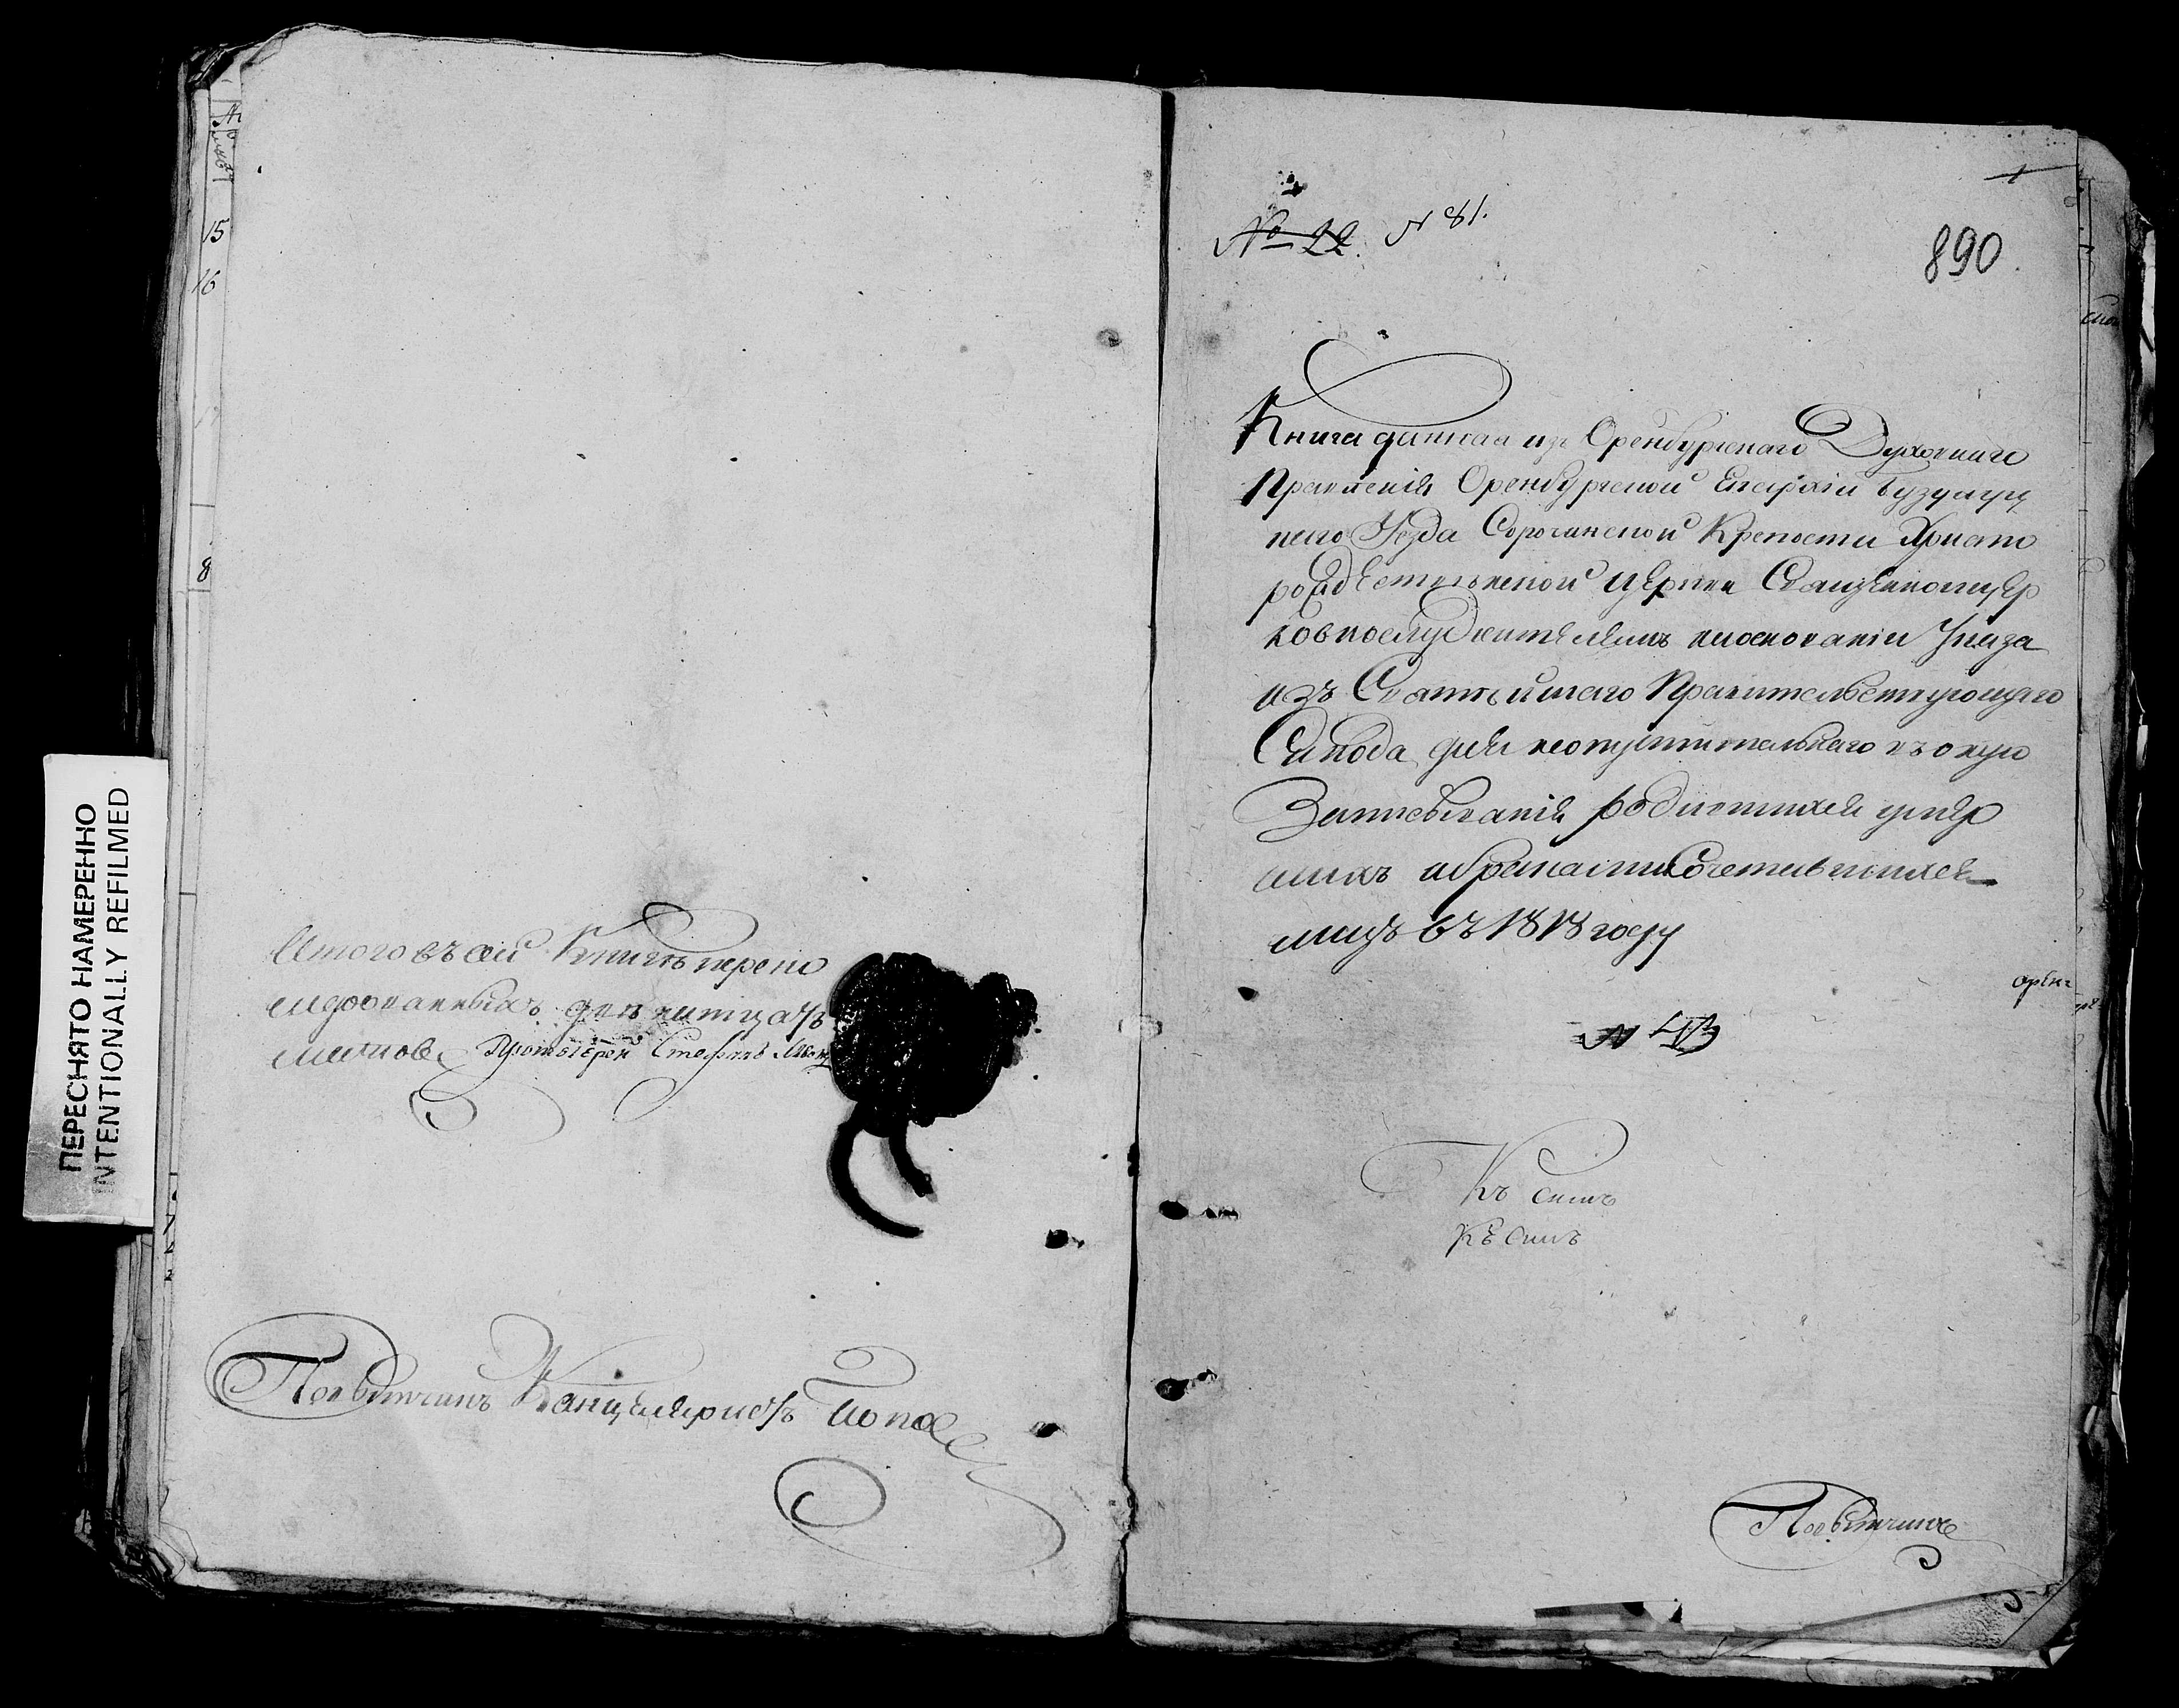 15
16
8
ПЕРЕСНЯТО НАМЕРЕННО
INTENTIONALLY REFILMED
Итого въ сей Книгѣ перено
мерованныхъ двенатцать
листовъ Протоіерей Стефанъ
Повытчикъ Канцеляристъ Попов
1
№ 22. N 81.
890
Книга данная изъ Оренбургскаго Духовнаго
Правленія Оренбургской Епархіи Бузулуц
каго Уезда Сорочинской Крепости Христо
рождественской церкви Священноцер
ковнослужителямъ наосновании Указа
изъ Святѣйшаго Правительствующаго
Синода для неопустительнаго въ оную
Записыванія родившихся умер
шихъ ибракомъ Сочетавшихся
лицъ въ 1818 году
орен:
N
Къ симъ
Къ симъ
Повытчикъ